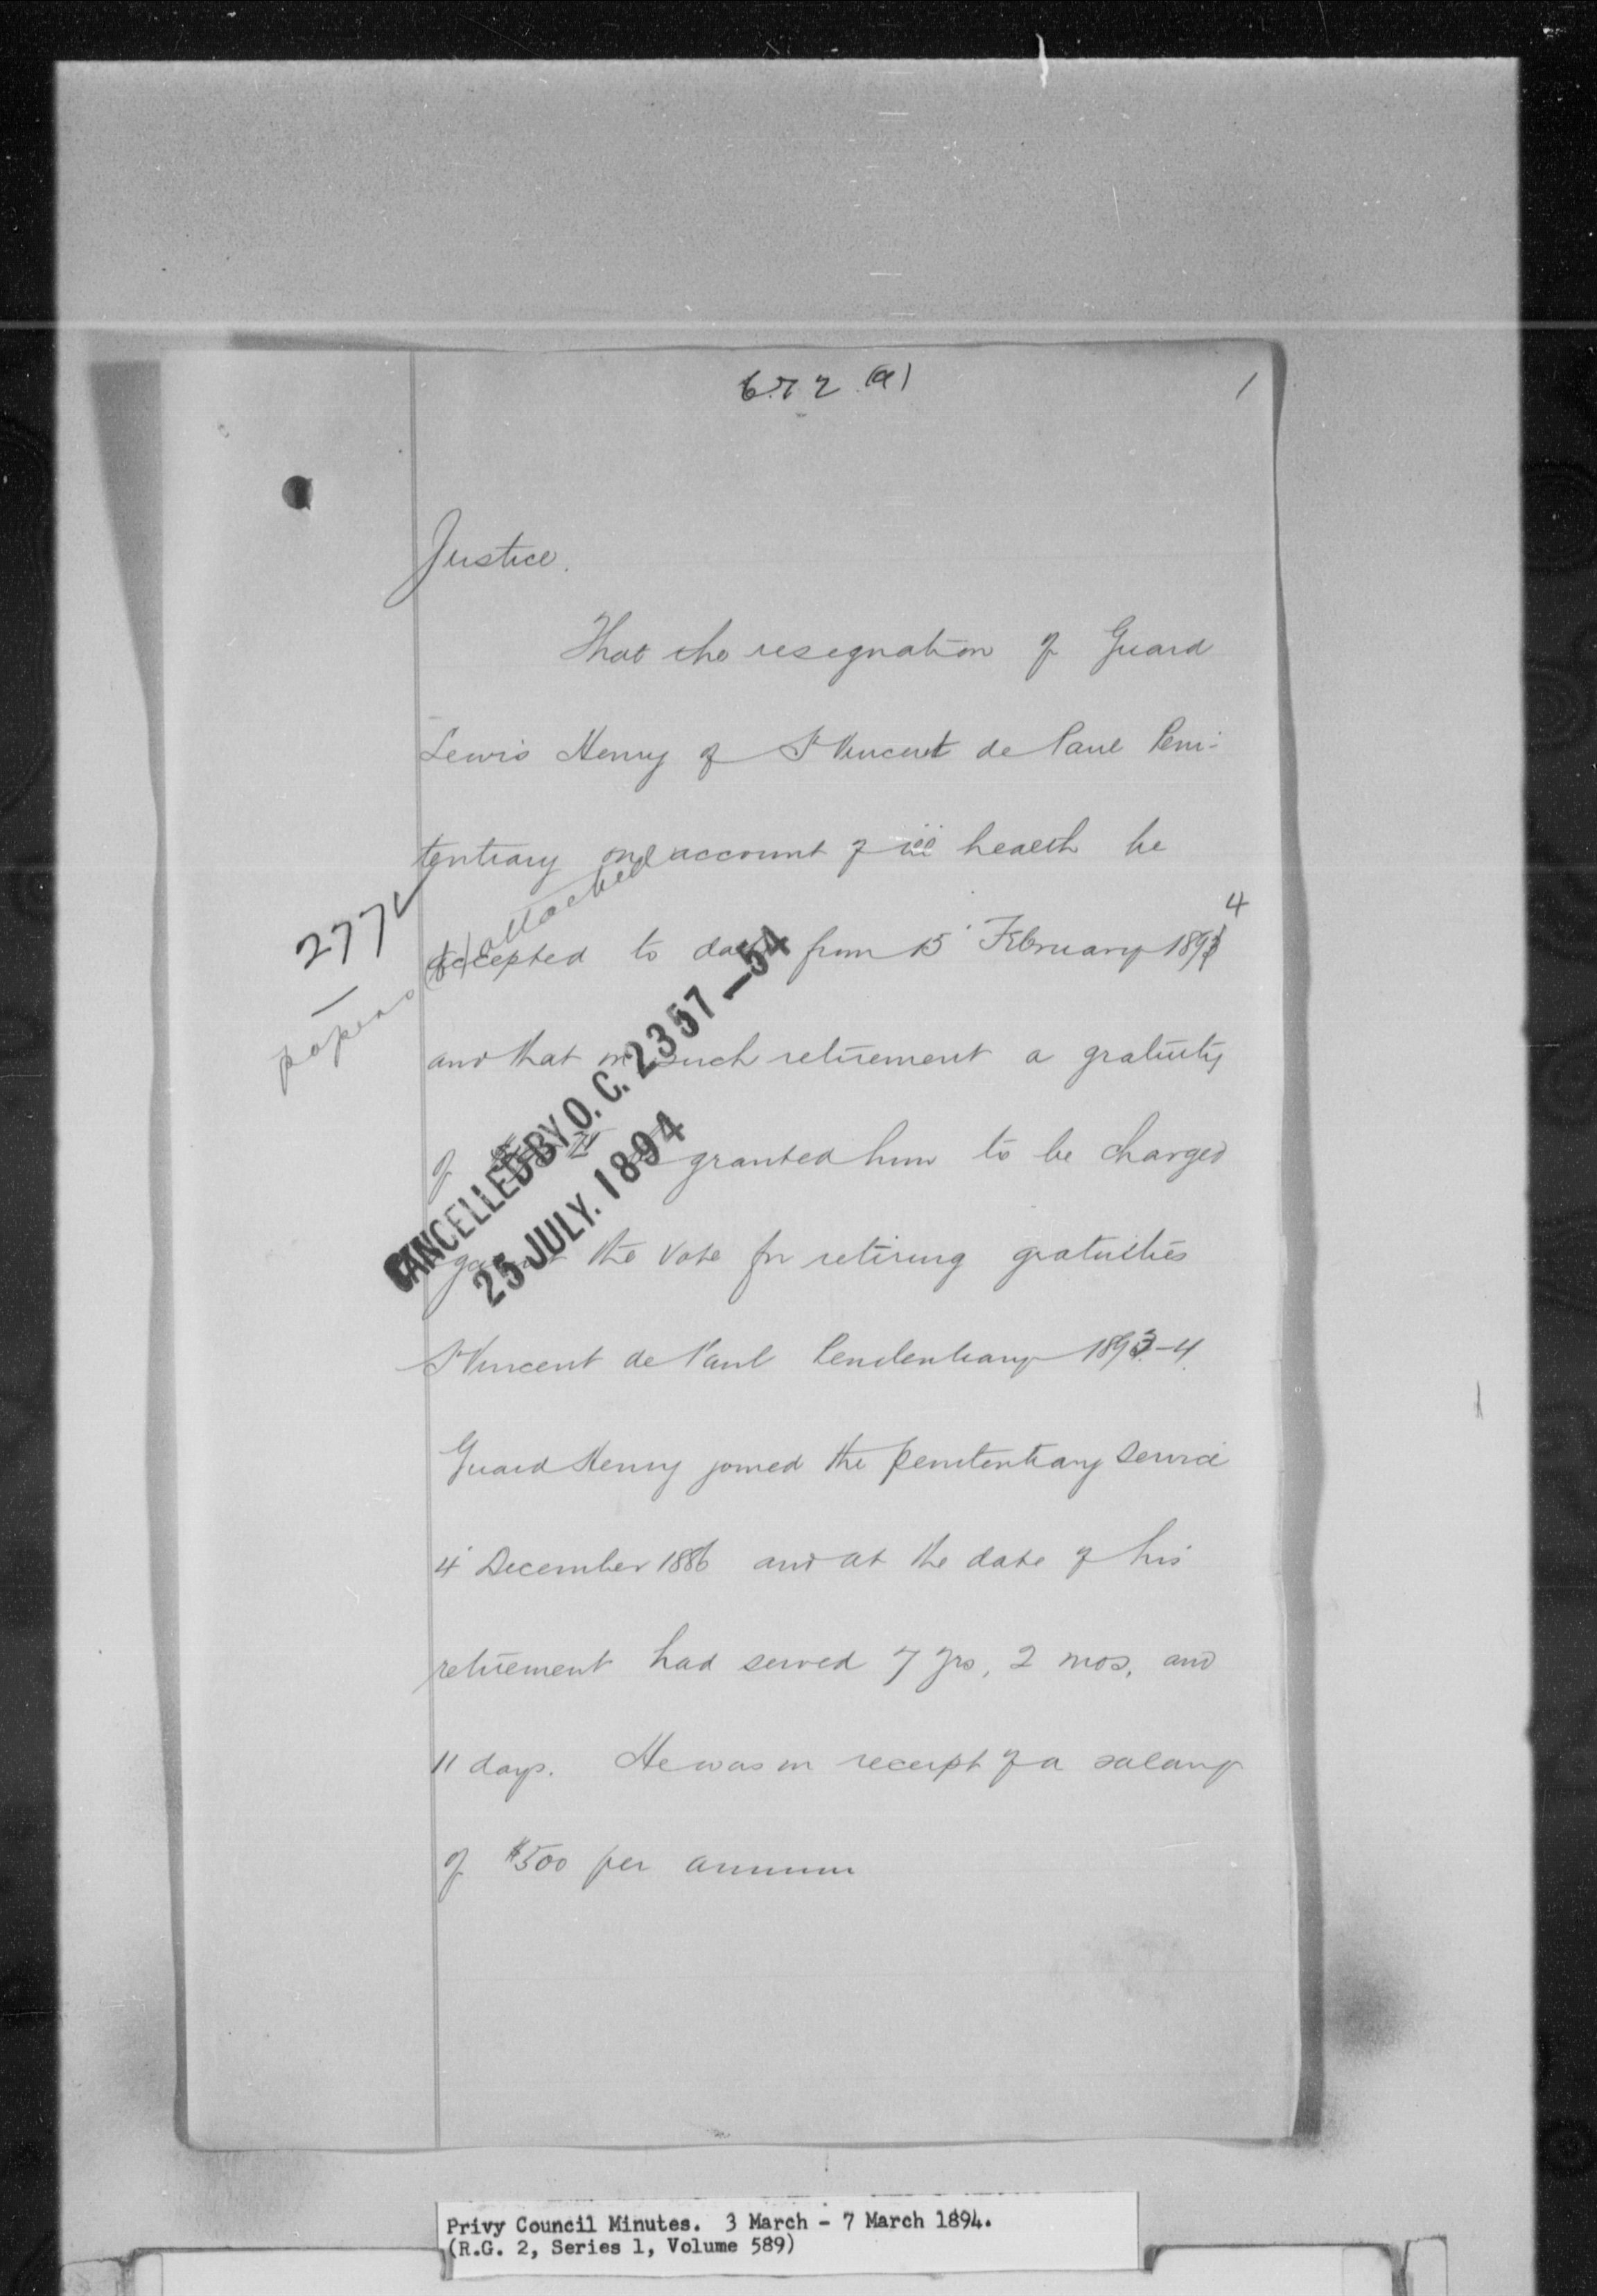 672 (a) 1
Justice.
That the resignation of Guard
Lewis Henry of St Vincent de Paul Peni-
tentiary on account of ill health be
accepted to date from 15 February 1894
and that on such retirement a gratuity
of be granted him to be charged
against the vote for retiring gratuities
St Vincent de Paul Penitentiary 1893-4.
Guard Henry joined the penitentiary service
4 December 1886 and at the date of his
retirement had served 7 yrs, 2 mos, and
11 days. He was in receipt of a salary
of $500 per annum
277
papers attached
CANCELLED BY O. C. 2357-54
25 JULY. 1894
Privy Council Minutes. 3 March - 7 March 1894.
(R.G. 2, Series 1, Volume 589)